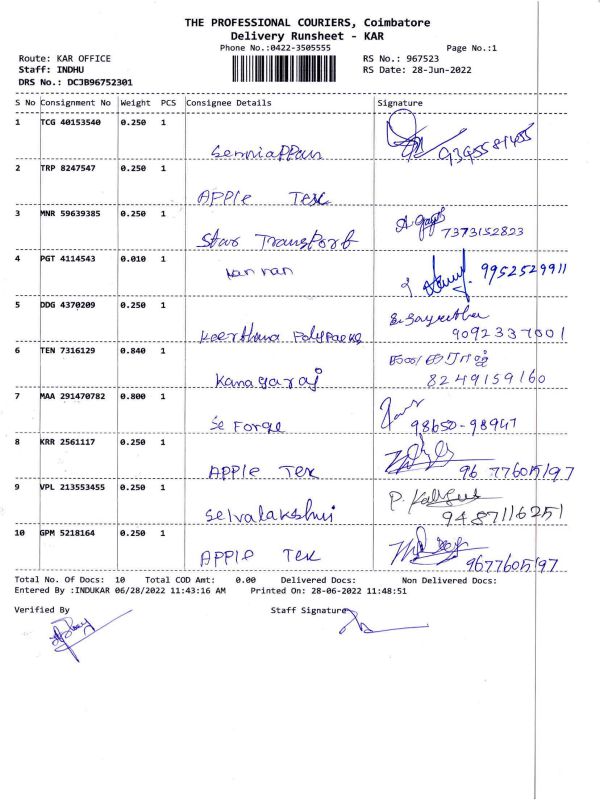 THE PROFESSIONAL COURIERS, Coimbatore
Delivery Runsheet - KAR
Phone No.:0422-3505555 Page No.:1
Route: KAR OFFICE RS No.: 967523
Staff: INDHU RS Date: 28-Jun-2022
DRS No.: DCJB96752301
S No Consignment No Weight PCS Consignee Details Signature
1 TCG 40153540 0.250 1
Senniappan 9395581455
2 TRP 8247547 0.250 1
APPle Tex
3 MNR 59639385 0.250 1
Star Transport 7373152823
4 PGT 4114543 0.010 1
kannan 9952529911
5 DDG 4370209 0.250 1
Keerthana Polypacks 9092337001
6 TEN 7316129 0.840 1 கனகராஜ்
Kanagaraj 8249159160
7 MAA 291470782 0.800 1
Se Forge 98650-98947
8 KRR 2561117 0.250 1
APPle Tex 9677605197
9 VPL 213553455 0.250 1
Selvalakshmi 9487116251
10 GPM 5218164 0.250 1
APPle Tex 9677605197
Total No. Of Docs: 10 Total COD Amt: 0.00 Delivered Docs: Non Delivered Docs:
Entered By :INDUKAR 06/28/2022 11:43:16 AM Printed On: 28-06-2022 11:48:51
Verified By Staff Signature